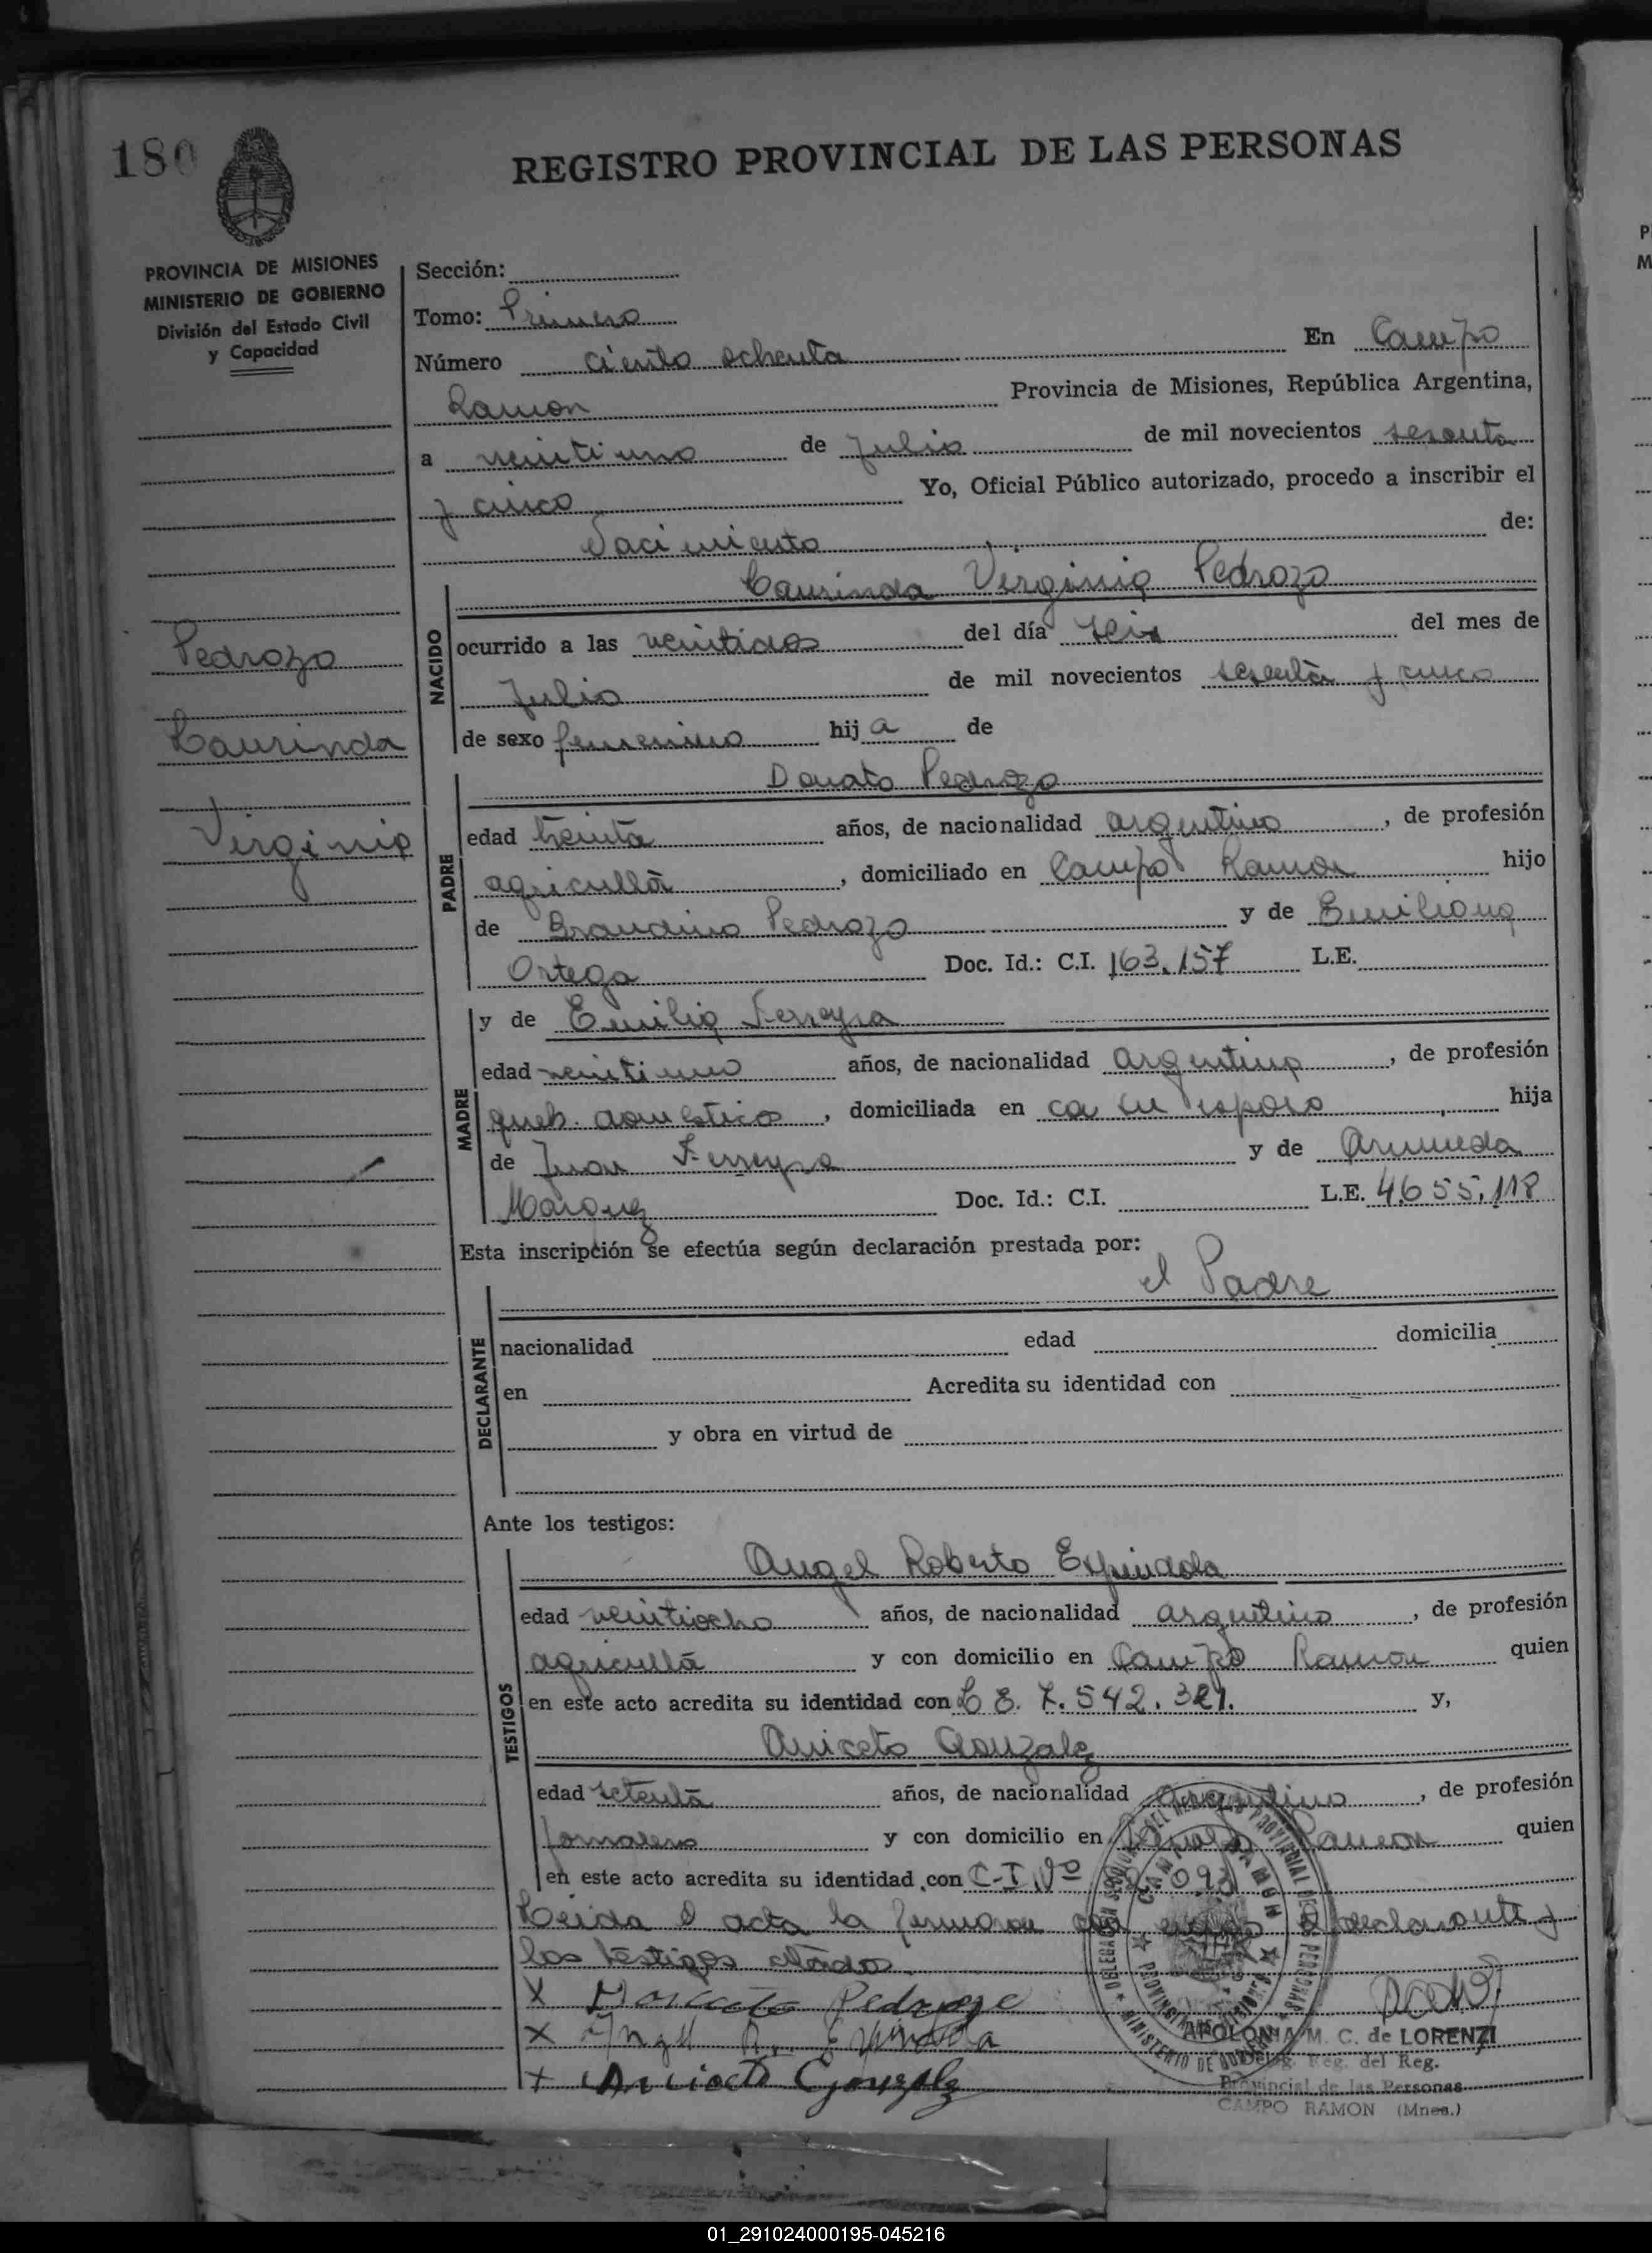 180
REGISTRO PROVINCIAL DE LAS PERSONAS
PROVINCIA DE MISIONES
MINISTERIO DE GOBIERNO
División del Estado Civil
y Capacidad
Sección:
Tomo: Primero
Número ciento ochenta En Campo
Ramon Provincia de Misiones, República Argentina,
a veintiuno de Julio de mil novecientos sesenta
y cinco Yo, Oficial Público autorizado, procedo a inscribir el
Nacimiento de:
Laurinda Virginia Pedrozo
Pedrozo
Laurinda
Virginia
NACIDO
ocurrido a las veintidos del día seis del mes de
Julio de mil novecientos sesenta y cinco
de sexo femenino hij a de
PADRE
Donato Pedrozo
edad treinta años, de nacionalidad argentino, de profesión
agricultã, domiciliado en Campo Ramon hijo
de Brandino Pedrozo y de Emiliana
Ortega Doc. Id.: C.I. 163.157 L.E.
MADRE
y de Emilia Ferreyra
edad veintiuno años, de nacionalidad argentina, de profesión
queh. domesticos, domiciliada en ca su esposo hija
de Juan Ferreyra y de
Marquez Doc. Id.: C.I. L.E. 4.655.118
Esta inscripción se efectúa según declaración prestada por:
el Padre
DECLARANTE
nacionalidad edad domicilia
en Acredita su identidad con
y obra en virtud de
Ante los testigos:
TESTIGOS
Angel Roberto Espindola
edad veintiocho años, de nacionalidad argentino, de profesión
agricultã y con domicilio en Campo Ramon quien
en este acto acredita su identidad con L E. 7.542.321. y,
Aniceto Gonzalez
edad setenta años, de nacionalidad argentino, de profesión
Jornalero y con domicilio en Campo Ramon quien
en este acto acredita su identidad con C-I Nº
Leida el acta la firmaron declarante y
los testigos citados.
X Pedrozo
X Angel R. Espindola
X Aniceto Gonzalez
APOLONIA M. C. de LORENZI
Deleg. Reg. del Reg.
Provincial de las Personas
CAMPO RAMON (Mnes.)
01_291024000195-045216